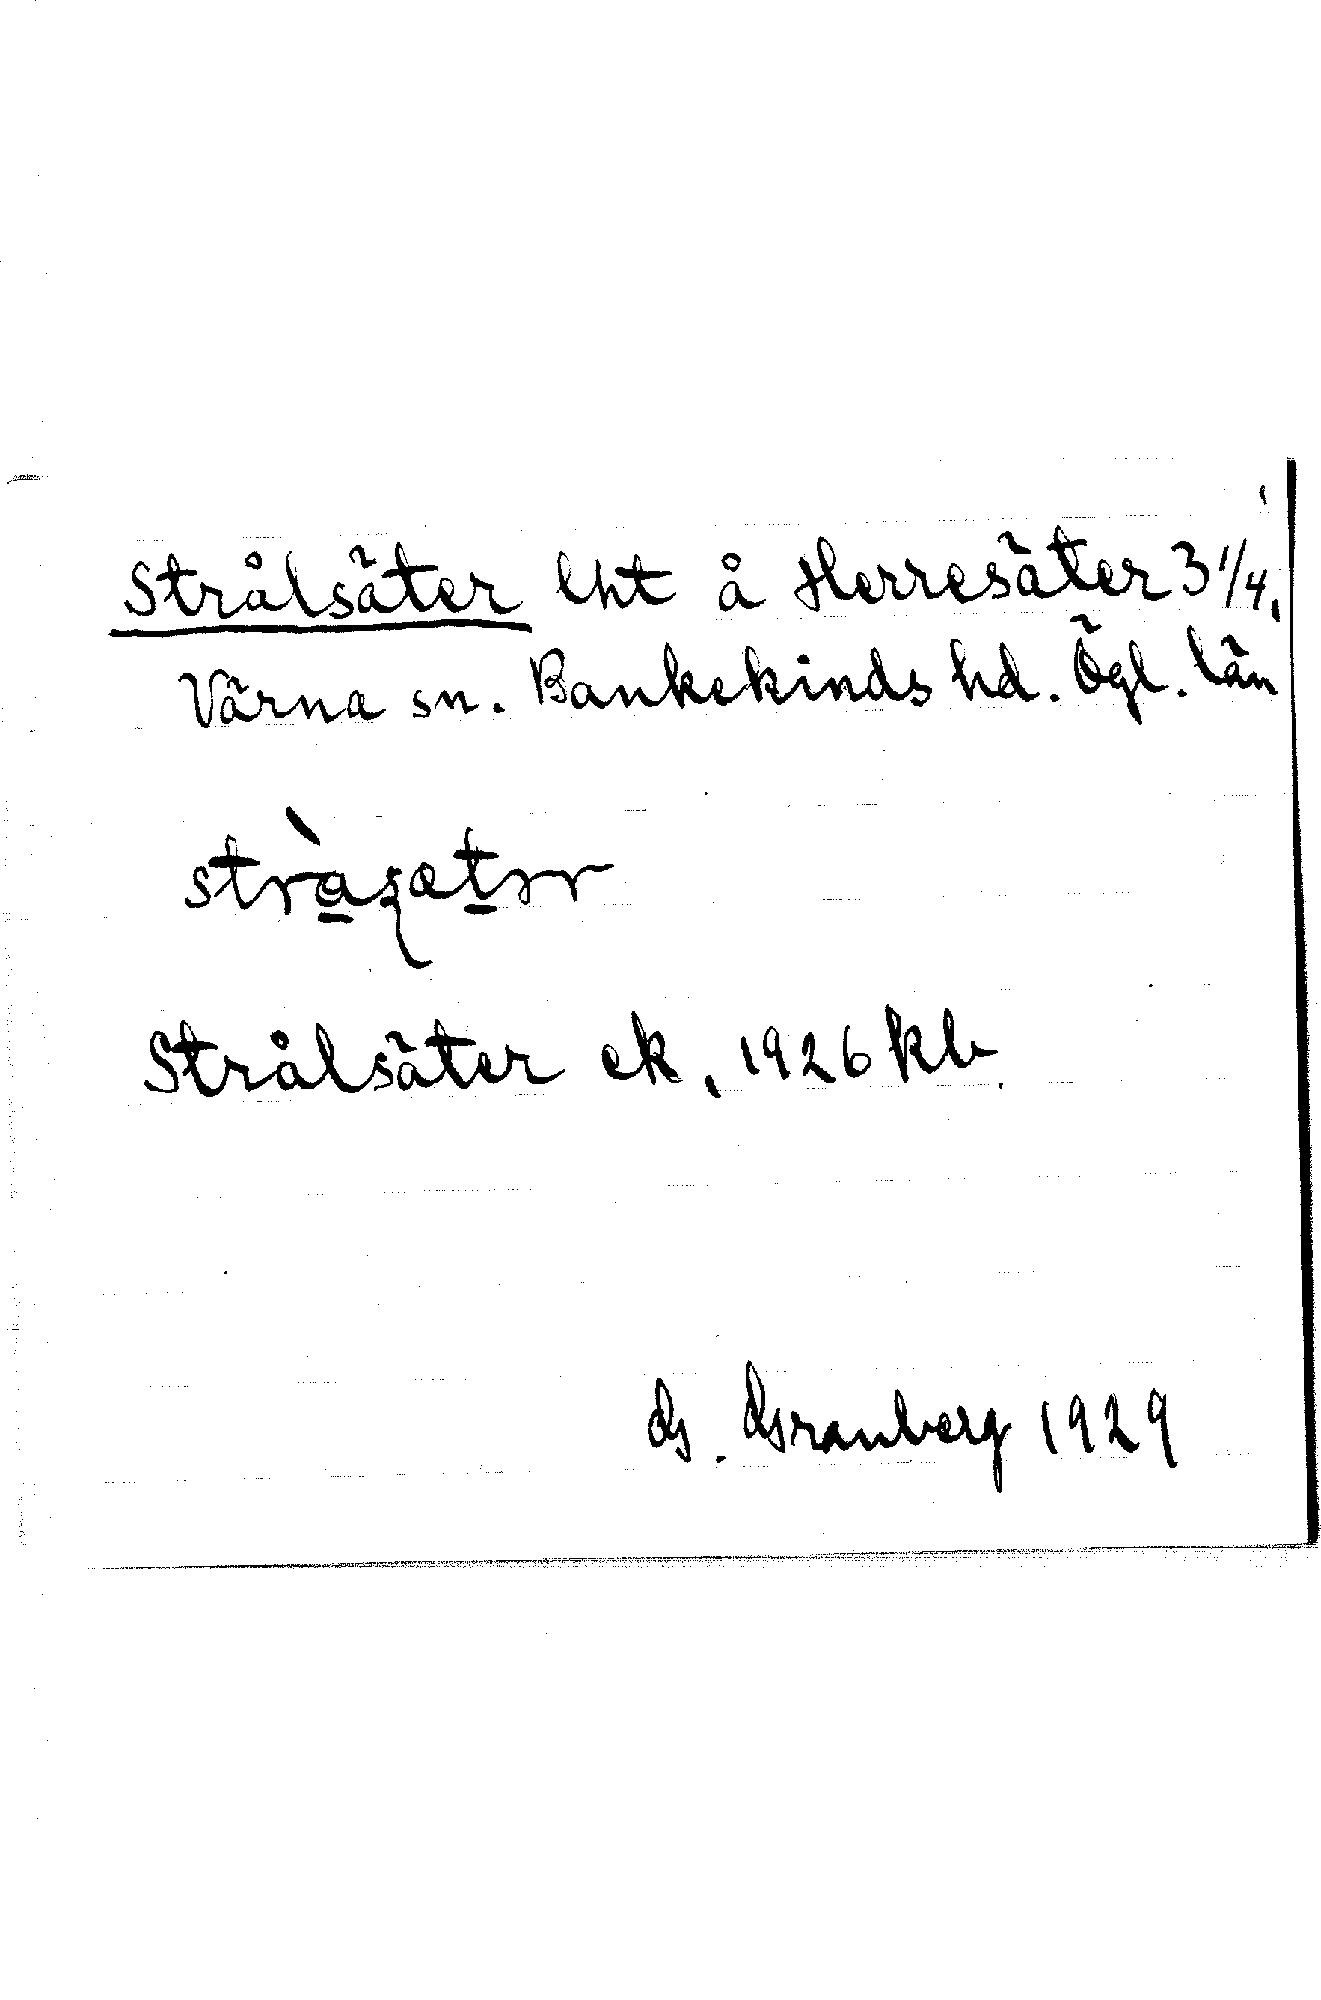 Strålsäter lht å Herresäter 3 1/4,
Värna sn. Bankekinds hd. Ögl. län
Strålsäter ek, 1926 kb.
G. Granberg 1929